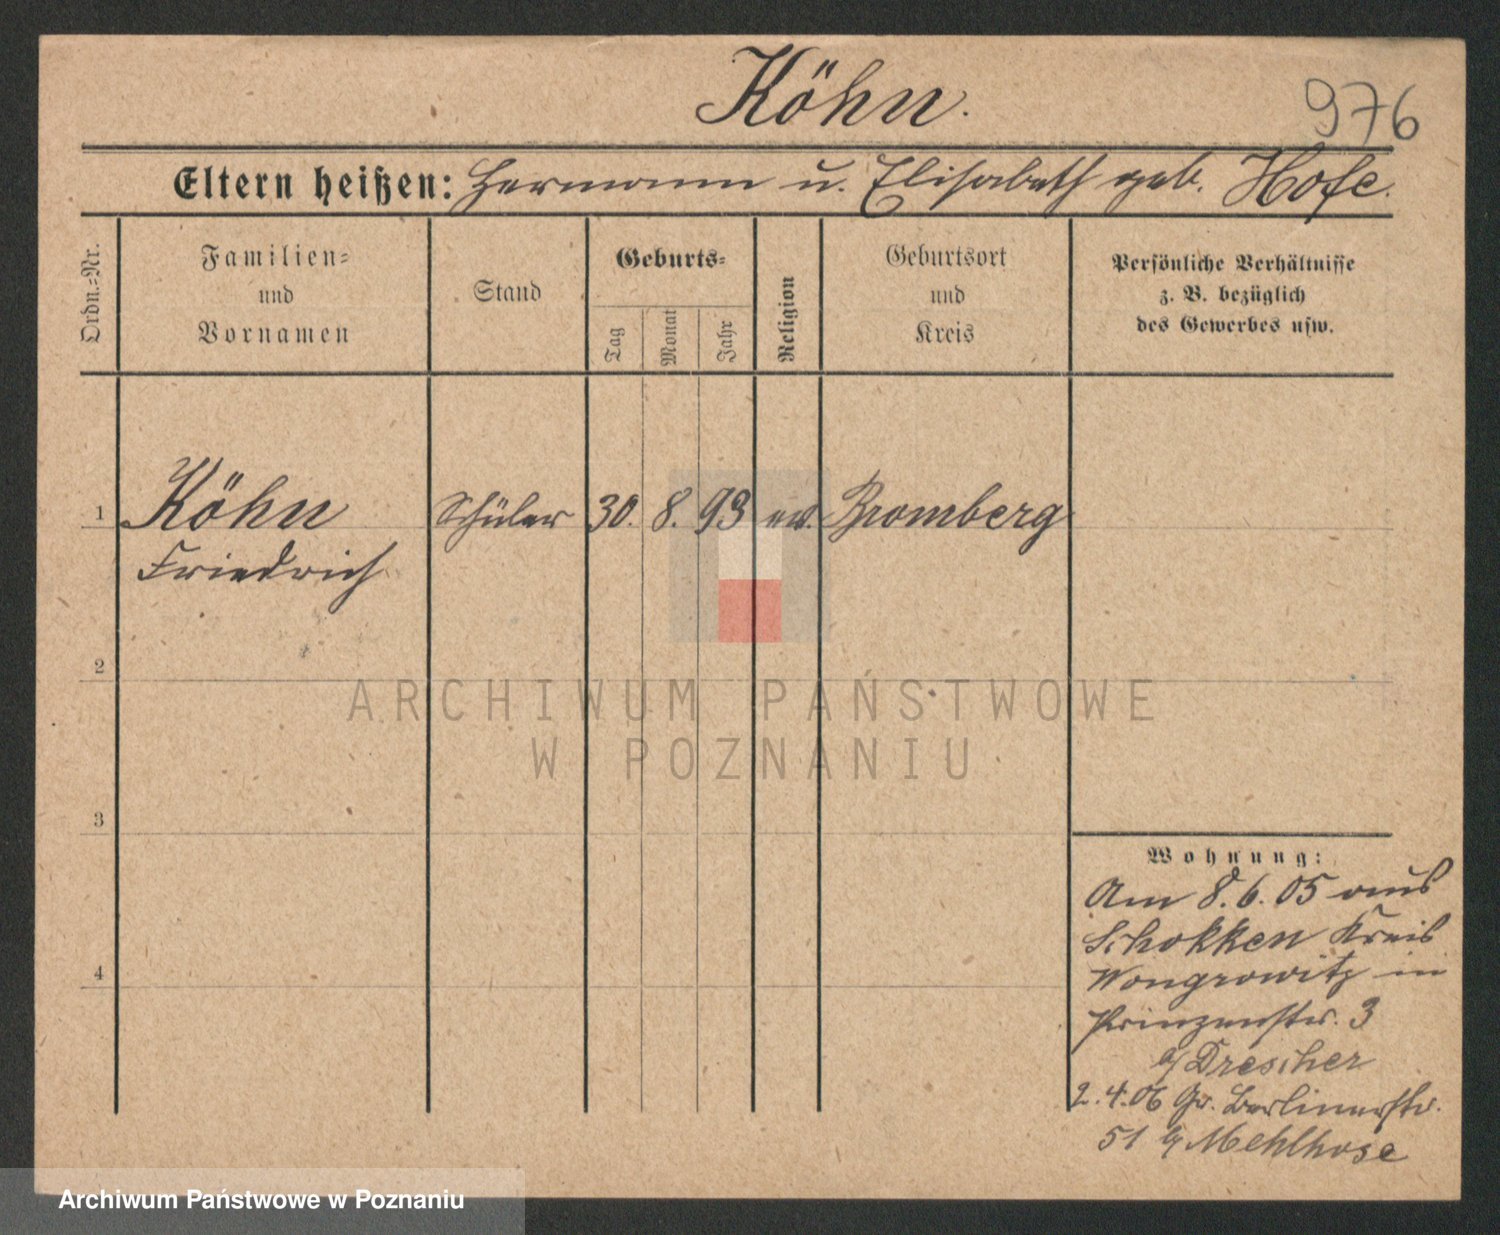 Köhn.
976
Eltern heißen: Hermann u. Elisabeth geb. Hofe.
Ordn.-Nr.
Familien-
und
Vornamen
Stand
Geburts-
Tag
Monat
Jahr
Religion
Geburtsort
und
Kreis
Persönliche Verhältnisse
z. B. bezüglich
des Gewerbes usw.
1 Köhn Schüler 30. 8. 93 ev. Bromberg
Friedrich
2
ARCHIWUM PAŃSTWOWE
W POZNANIU
3
Wohnung:
Am 8.6.05 aus
Schokken Kreis
Wongrowitz in
Prinzenstr. 3
b/ Drescher
4
2.4.06 Gr. Berlinerstr.
51 b/ Mehlhose
Archiwum Państwowe w Poznaniu